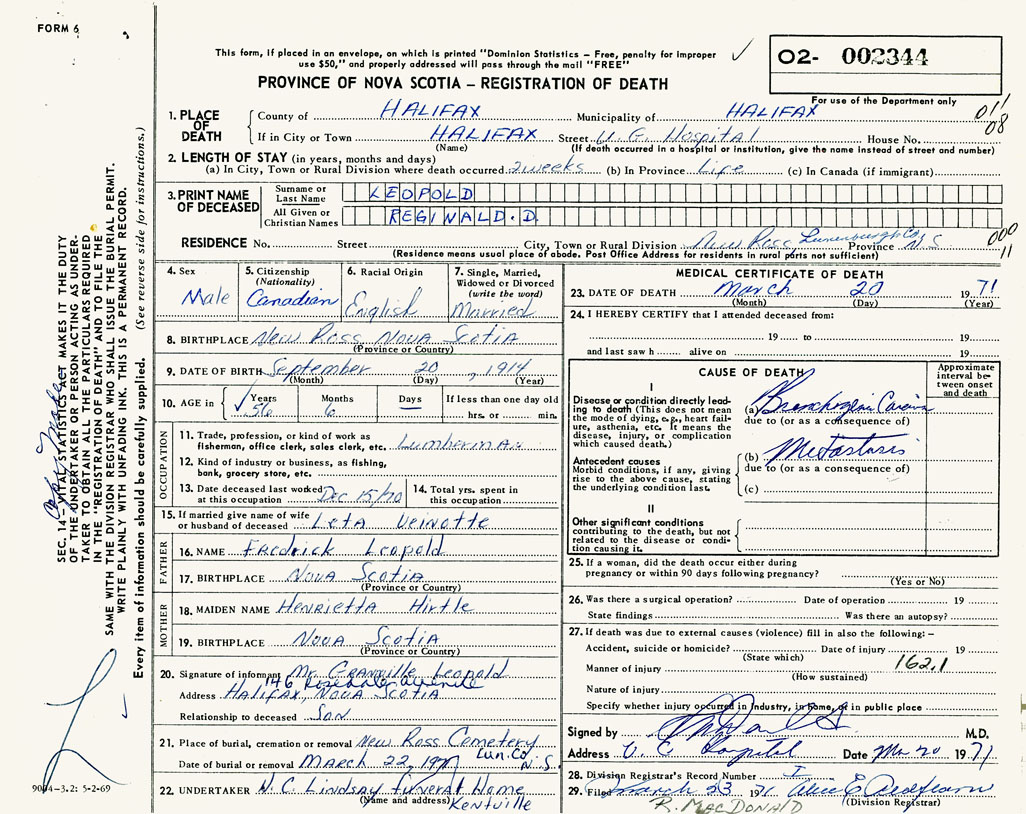 FORM 6
This form, if placed in an envelope, on which is printed "Dominion Statistics – Free, penalty for improper
use $50," and properly addressed will pass through the mail "FREE"
O2- 002344
PROVINCE OF NOVA SCOTIA – REGISTRATION OF DEATH
For use of the Department only
1. PLACE OF DEATH
County of HALIFAX Municipality of HALIFAX 011
If in City or Town HALIFAX Street V. G. Hospital House No. 08
(Name) (If death occurred in a hospital or institution, give the name instead of street and number)
2. LENGTH OF STAY (in years, months and days)
(a) In City, Town or Rural Division where death occurred 2 weeks (b) In Province Life (c) In Canada (if immigrant)
3. PRINT NAME OF DECEASED
Surname or Last Name LEOPOLD
All Given or Christian Names REGINALD. D.
RESIDENCE No. Street City, Town or Rural Division New Ross Lunenburg Co. Province N S 000
(Residence means usual place of abode. Post Office Address for residents in rural parts not sufficient) 11
4. Sex Male
5. Citizenship (Nationality) Canadian
6. Racial Origin English
7. Single, Married, Widowed or Divorced (write the word) Married
8. BIRTHPLACE New Ross Nova Scotia
(Province or Country)
9. DATE OF BIRTH September 20, 1914
(Month) (Day) (Year)
10. AGE in Years 56 Months 6 Days — If less than one day old
hrs. or min.
OCCUPATION
11. Trade, profession, or kind of work as
fisherman, office clerk, sales clerk, etc. Lumberman
12. Kind of industry or business, as fishing,
bank, grocery store, etc.
13. Date deceased last worked at this occupation Dec 15/70
14. Total yrs. spent in this occupation
15. If married give name of wife
or husband of deceased Leta Veinotte
FATHER
16. NAME Fredrick Leopold
17. BIRTHPLACE Nova Scotia
(Province or Country)
MOTHER
18. MAIDEN NAME Henrietta Hirtle
19. BIRTHPLACE Nova Scotia
(Province or Country)
20. Signature of informant Mr. Granville Leopold
146
Address Halifax, Nova Scotia
Relationship to deceased Son
21. Place of burial, cremation or removal New Ross Cemetery
Lun. Co. N. S.
Date of burial or removal MARCH 22, 1971
22. UNDERTAKER N. C. Lindsay Funeral Home
(Name and address) Kentville
MEDICAL CERTIFICATE OF DEATH
23. DATE OF DEATH March 20 1971
(Month) (Day) (Year)
24. I HEREBY CERTIFY that I attended deceased from:
19 to 19
and last saw h alive on 19
CAUSE OF DEATH
Approximate interval between onset and death
I
Disease or condition directly leading to death (This does not mean the mode of dying, e.g., heart failure, asthenia, etc. It means the disease, injury, or complication which caused death.)
(a) Bronchogenic
due to (or as a consequence of)
Antecedent causes
Morbid conditions, if any, giving rise to the above cause, stating the underlying condition last.
(b) Metastasis
due to (or as a consequence of)
(c)
II
Other significant conditions
contributing to the death, but not related to the disease or condition causing it.
25. If a woman, did the death occur either during
pregnancy or within 90 days following pregnancy?
(Yes or No)
26. Was there a surgical operation? Date of operation 19
State findings Was there an autopsy?
27. If death was due to external causes (violence) fill in also the following:–
Accident, suicide or homicide? Date of injury 19
(State which)
162.1
Manner of injury
(How sustained)
Nature of injury
Specify whether injury occurred in industry, in home, or in public place
Signed by M.D.
Address V. G. Hospital Date Mar 20 1971
28. Division Registrar's Record Number
29. Filed March 23 1971
(Division Registrar)
R. MACDONALD
SEC. 14 – VITAL STATISTICS ACT MAKES IT THE DUTY
OF THE UNDERTAKER OR PERSON ACTING AS UNDER-
TAKER TO OBTAIN ALL THE PARTICULARS REQUIRED
IN THE "REGISTRATION OF DEATH" AND TO FILE THE
SAME WITH THE DIVISION REGISTRAR WHO SHALL ISSUE THE BURIAL PERMIT.
WRITE PLAINLY WITH UNFADING INK. THIS IS A PERMANENT RECORD.
Every item of information should be carefully supplied. (See reverse side for instructions.)
9094–3.2: 5-2-69